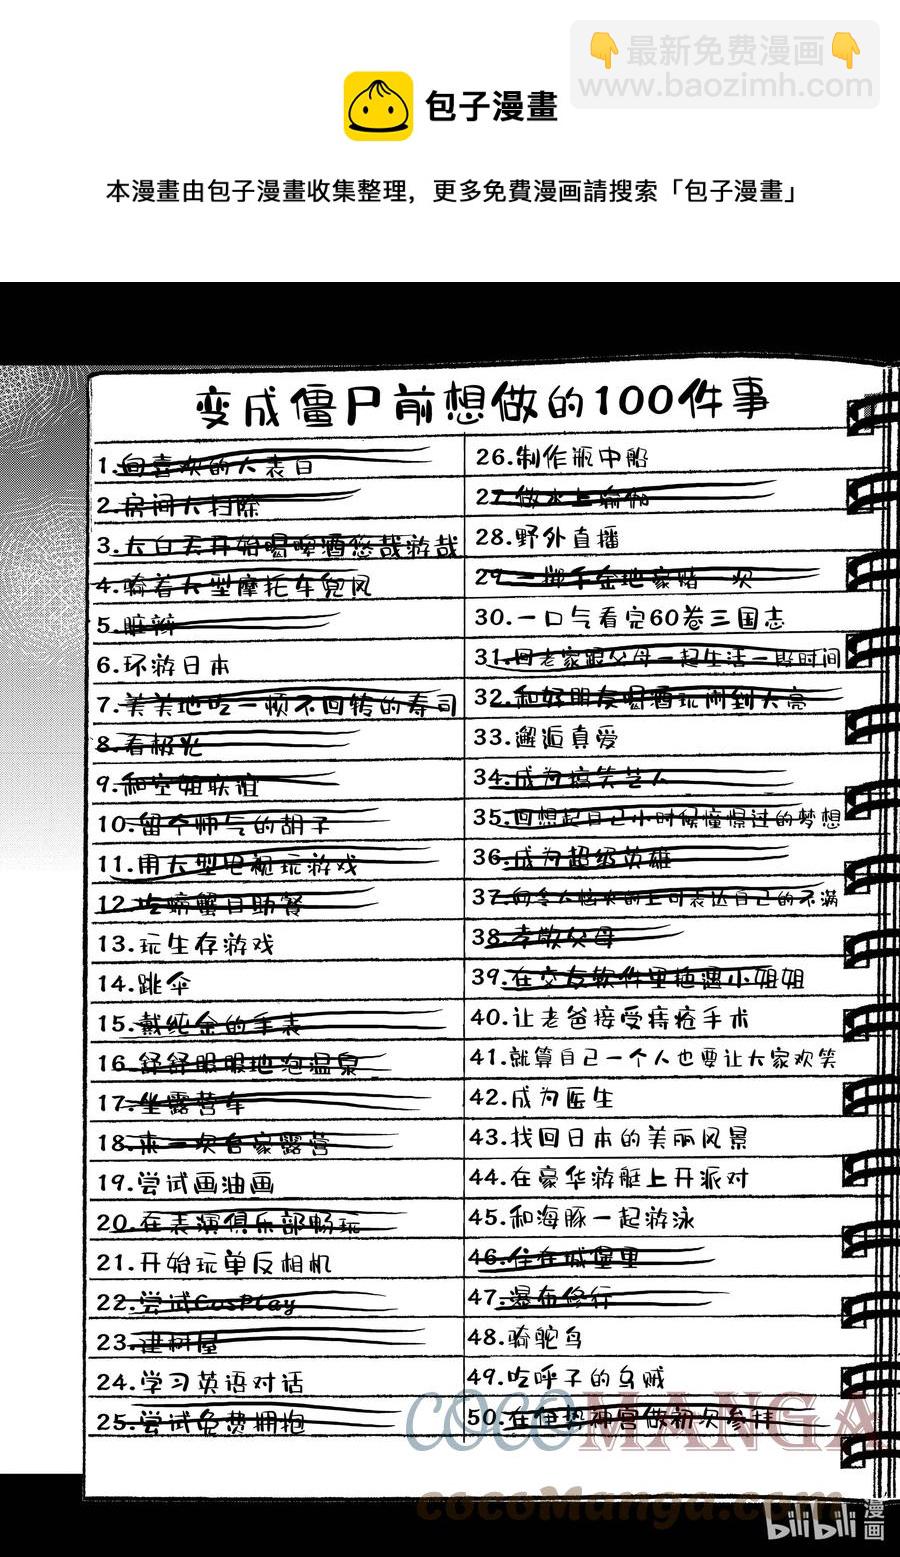 最新免费漫画
www.baozimh.com
包子漫畫
本漫畫由包子漫畫收集整理，更多免費漫画請搜索「包子漫畫」
变成僵尸前想做的100件事
1.向喜欢的人表白
2.房间大扫除
3.大白天开始喝啤酒悠哉游哉
4.骑着大型摩托车兜风
5.脏辫
6.环游日本
7.美美地吃一顿不回转的寿司
8.看极光
9.和空姐联谊
10.留个帅气的胡子
11.用大型电视玩游戏
12.吃螃蟹自助餐
13.玩生存游戏
14.跳伞
15.戴纯金的手表
16.舒舒服服地泡温泉
17.坐露营车
18.来一次自家露营
19.尝试画油画
20.在表演俱乐部畅玩
21.开始玩单反相机
22.尝试CosPlay
23.建树屋
24.学习英语对话
25.尝试免费拥抱
26.制作瓶中船
27.做水上瑜伽
28.野外直播
29.一掷千金地豪赌一次
30.一口气看完60卷三国志
31.回老家跟父母一起生活一段时间
32.和好朋友喝酒玩闹到天亮
33.邂逅真爱
34.成为搞笑艺人
35.回想起自己小时候憧憬过的梦想
36.成为超级英雄
37.向令人恼火的上司表达自己的不满
38.孝敬父母
39.在交友软件里艳遇小姐姐
40.让老爸接受痔疮手术
41.就算自己一个人也要让大家欢笑
42.成为医生
43.找回日本的美丽风景
44.在豪华游艇上开派对
45.和海豚一起游泳
46.住在城堡里
47.瀑布修行
48.骑鸵鸟
49.吃呼子的乌贼
50.在伊势神宫做初次参拜
COCOMANGA
cocomanga.com
bilibili 漫画